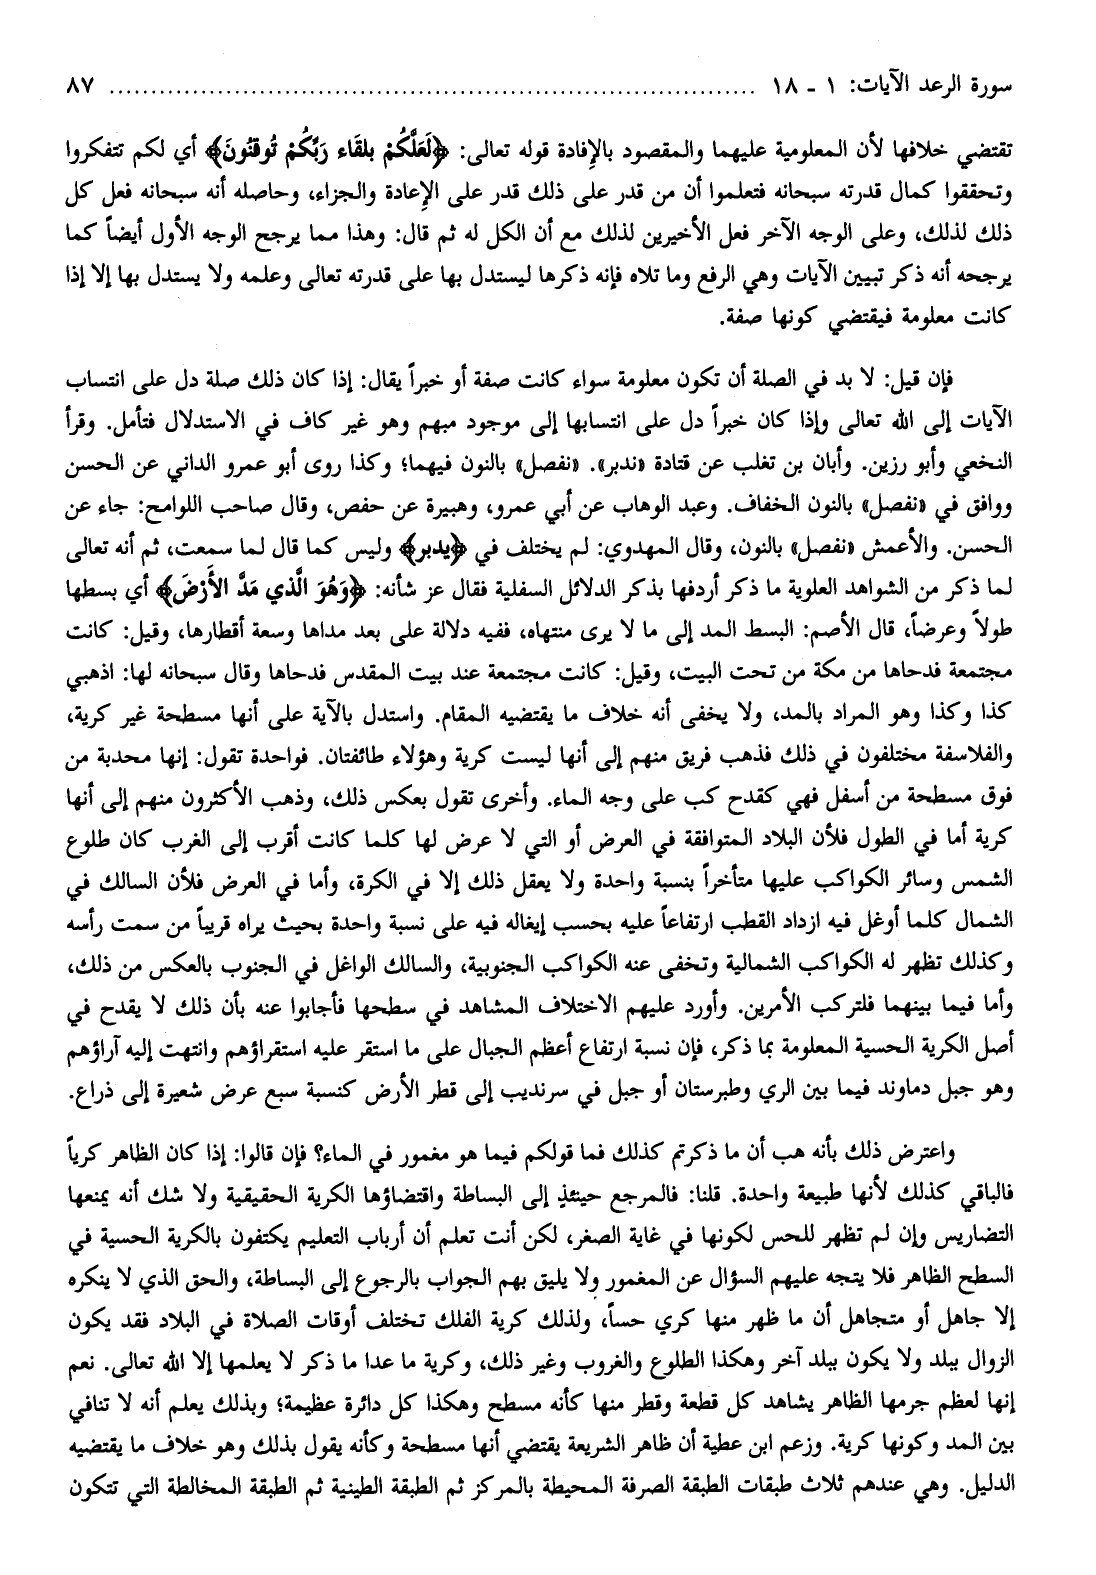 سورة الرعد الآيات: ١ - ١٨ ........................................................................... ٨٧
تقتضي خلافها لأن المعلومية عليهما والمقصود بالإفادة قوله تعالى: ﴿لَعَلَّكُمْ بِلقَاء رَبِّكُمْ تُوقنُونَ﴾ أي لكم تتفكروا
وتحققوا كمال قدرته سبحانه فتعلموا أن من قدر على ذلك قدر على الإعادة والجزاء، وحاصله أنه سبحانه فعل كل
ذلك لذلك، وعلى الوجه الآخر فعل الأخيرين لذلك مع أن الكل له ثم قال: وهذا مما يرجح الوجه الأول أيضاً كما
يرجحه أنه ذكر تبيين الآيات وهي الرفع وما تلاه فإنه ذكرها ليستدل بها على قدرته تعالى وعلمه ولا يستدل بها إلا إذا
كانت معلومة فيقتضي كونها صفة.
فإن قيل: لا بد في الصلة أن تكون معلومة سواء كانت صفة أو خبراً يقال: إذا كان ذلك صلة دل على انتساب
الآيات إلى الله تعالى وإذا كان خبراً دل على انتسابها إلى موجود مبهم وهو غير كاف في الاستدلال فتأمل. وقرأ
النخعي وأبو رزين. وأبان بن تغلب عن قتادة «ندبر». «نفصل» بالنون فيهما؛ وكذا روى أبو عمرو الداني عن الحسن
ووافق في «نفصل» بالنون الخفاف. وعبد الوهاب عن أبي عمرو، وهبيرة عن حفص، وقال صاحب اللوامح: جاء عن
الحسن. والأعمش «نفصل» بالنون، وقال المهدوي: لم يختلف في ﴿يدبر﴾ وليس كما قال لما سمعت، ثم أنه تعالى
لما ذكر من الشواهد العلوية ما ذكر أردفها بذكر الدلائل السفلية فقال عز شأنه: ﴿وَهُوَ الَّذي مَدَّ الأَرْضَ﴾ أي بسطها
طولاً وعرضاً، قال الأصم: البسط المد إلى ما لا يرى منتهاه، ففيه دلالة على بعد مداها وسعة أقطارها، وقيل: كانت
مجتمعة فدحاها من مكة من تحت البيت، وقيل: كانت مجتمعة عند بيت المقدس فدحاها وقال سبحانه لها: اذهبي
كذا وكذا وهو المراد بالمد، ولا يخفى أنه خلاف ما يقتضيه المقام. واستدل بالآية على أنها مسطحة غير كرية،
والفلاسفة مختلفون في ذلك فذهب فريق منهم إلى أنها ليست كرية وهؤلاء طائفتان. فواحدة تقول: إنها محدبة من
فوق مسطحة من أسفل فهي كقدح كب على وجه الماء. وأخرى تقول بعكس ذلك، وذهب الأكثرون منهم إلى أنها
كرية أما في الطول فلأن البلاد المتوافقة في العرض أو التي لا عرض لها كلما كانت أقرب إلى الغرب كان طلوع
الشمس وسائر الكواكب عليها متأخراً بنسبة واحدة ولا يعقل ذلك إلا في الكرة، وأما في العرض فلأن السالك في
الشمال كلما أوغل فيه ازداد القطب ارتفاعاً عليه بحسب إيغاله فيه على نسبة واحدة بحيث يراه قريباً من سمت رأسه
وكذلك تظهر له الكواكب الشمالية وتخفى عنه الكواكب الجنوبية، والسالك الواغل في الجنوب بالعكس من ذلك،
وأما فيما بينهما فلتركب الأمرين. وأورد عليهم الاختلاف المشاهد في سطحها فأجابوا عنه بأن ذلك لا يقدح في
أصل الكرية الحسية المعلومة بما ذكر، فإن نسبة ارتفاع أعظم الجبال على ما استقر عليه استقراؤهم وانتهت إليه آراؤهم
وهو جبل دماوند فيما بين الري وطبرستان أو جبل في سرنديب إلى قطر الأرض كنسبة سبع عرض شعيرة إلى ذراع.
واعترض ذلك بأنه هب أن ما ذكرتم كذلك فما قولكم فيما هو مغمور في الماء؟ فإن قالوا: إذا كان الظاهر كرياً
فالباقي كذلك لأنها طبيعة واحدة. قلنا: فالمرجع حينئذٍ إلى البساطة واقتضاؤها الكرية الحقيقية ولا شك أنه يمنعها
التضاريس وإن لم تظهر للحس لكونها في غاية الصغر، لكن أنت تعلم أن أرباب التعليم يكتفون بالكرية الحسية في
السطح الظاهر فلا يتجه عليهم السؤال عن المغمور ولا يليق بهم الجواب بالرجوع إلى البساطة، والحق الذي لا ينكره
إلا جاهل أو متجاهل أن ما ظهر منها كري حساً، ولذلك كرية الفلك تختلف أوقات الصلاة في البلاد فقد يكون
الزوال ببلد ولا يكون ببلد آخر وهكذا الطلوع والغروب وغير ذلك، وكرية ما عدا ما ذكر لا يعلمها إلا الله تعالى. نعم
إنها لعظم جرمها الظاهر يشاهد كل قطعة وقطر منها كأنه مسطح وهكذا كل دائرة عظيمة؛ وبذلك يعلم أنه لا تنافي
بين المد وكونها كرية. وزعم ابن عطية أن ظاهر الشريعة يقتضي أنها مسطحة وكأنه يقول بذلك وهو خلاف ما يقتضيه
الدليل. وهي عندهم ثلاث طبقات الطبقة الصرفة المحيطة بالمركز ثم الطبقة الطينية ثم الطبقة المخالطة التي تتكون